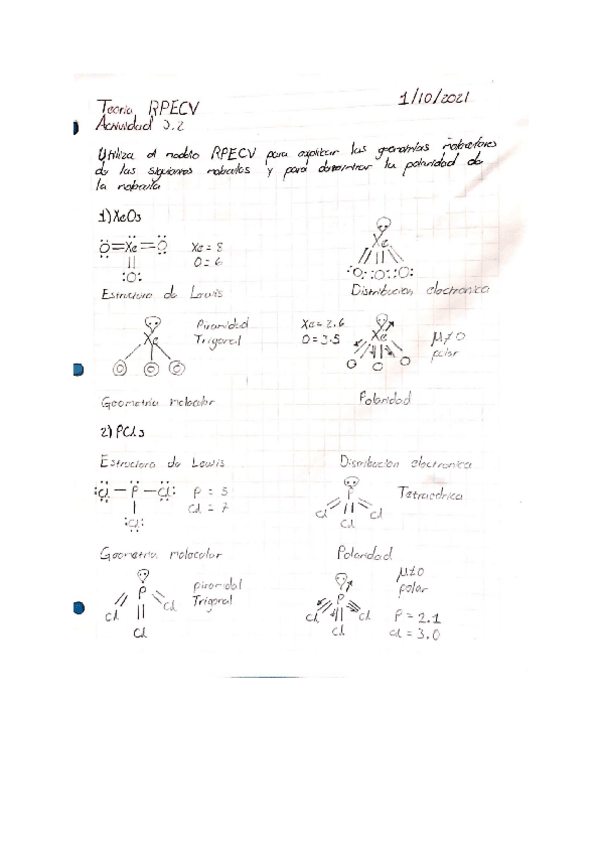 Teoria RPECV
1/10/2021
Actividad 3.2
Utiliza el modelo RPECV para explicar las geometrías moleculares
de las siguientes moleculas y para determinar la polaridad de
la molecula
1) XeO3
O=Xe=O
Xe = 8
O = 6
:O:
Estructura de Lewis
Xe
:O: :O: :O:
Distribucion electronica
Xe
O O O
Piramidal
Trigonal
Geometria molecular
Xe=2.6
O=3.5
Xe
O O O
μ≠0
polar
Polaridad
2) PCl3
Estructura de Lewis
:Cl — P — Cl:
:Cl:
P = 5
Cl = 7
Distribucion electronica
P
Cl Cl Cl
Tetraedrica
Geometria molecular
P
Cl Cl
Cl
piramidal
Trigonal
Polaridad
P
Cl Cl
Cl
μ≠0
polar
P = 2.1
Cl = 3.0